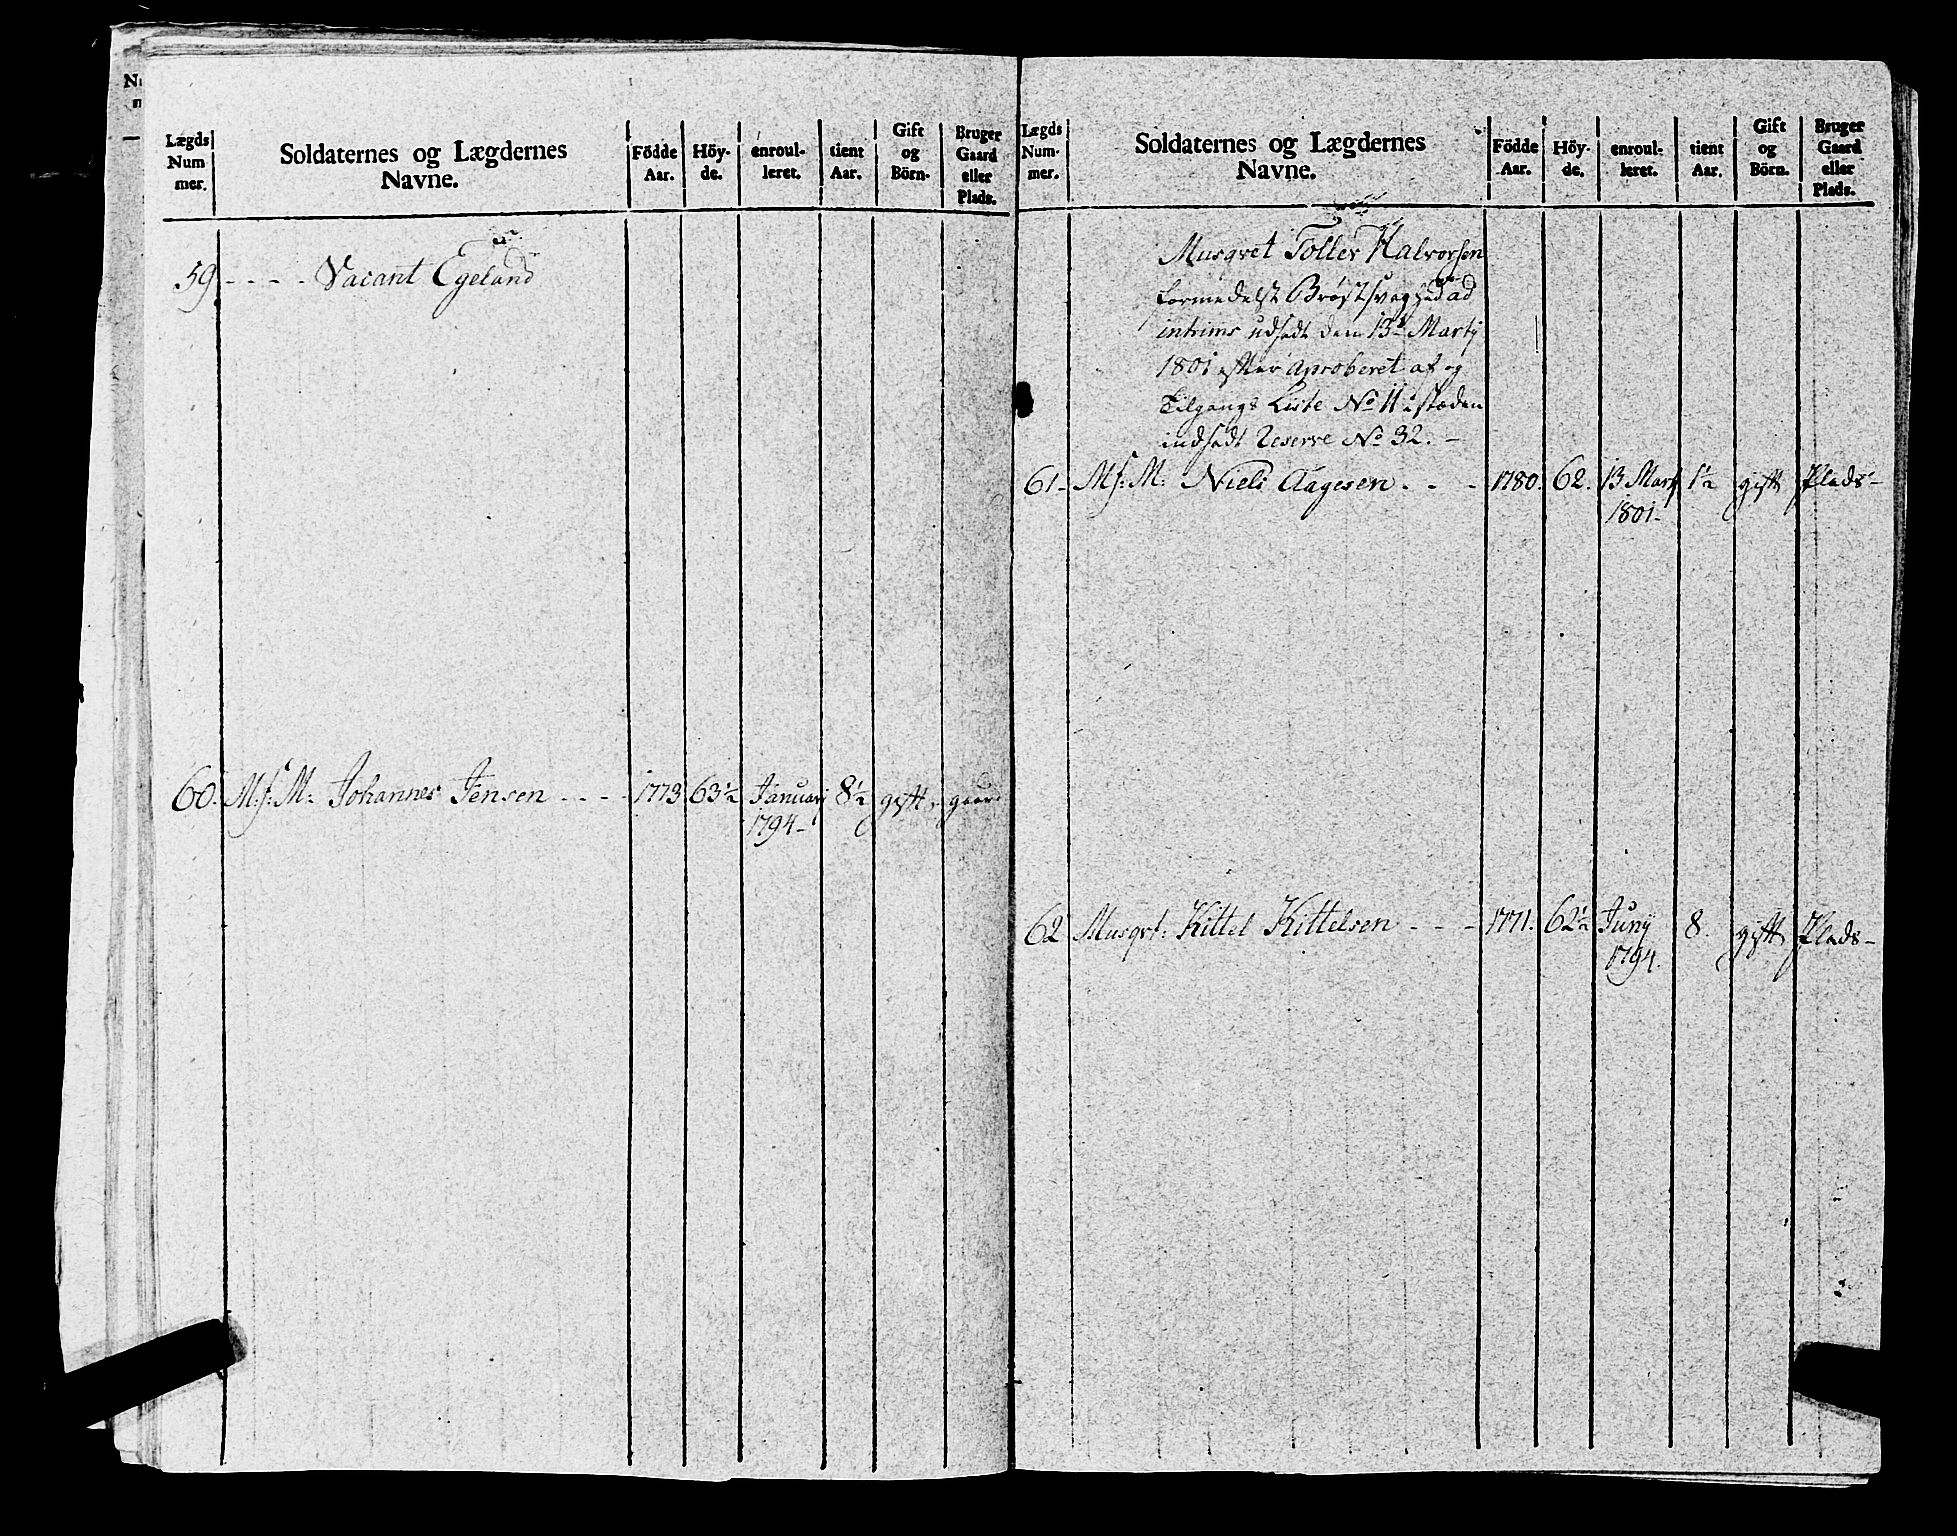 Lægds Num mer.
Soldaternes og Lægdernes Navne.
Födde Aar.
Höy- de.
enroul- leret.
tient Aar.
Gift og Börn.
Bruger Gaard eller Plads.
59 - - - - Vacant Egeland
60. M:f: M: Johannes Jensen - - - - 1773 63½ Januarj 8½ gift. gaard
1794-
Lægds Num- mer.
Soldaternes og Lægdernes Navne.
Födde Aar.
Höy- de.
enroul- leret.
tient Aar.
Gift og Börn.
Bruger Gaard eller Plads.
Musqvet Toller Halvorsen
formedelst Brøstsvaghed ad
intrims udsadt den 13de Martj
1801 efter Aproberet af og
Tilgangs Liste No 11 i stæden
indsadt Reserve No 32. -
61- Mf: M: Niels Aagesen - - - 1780. 62. 13 Mart 1½ gift Plads-
1801-
62 Musqvt: Kittel Kittelsen - - - 1771. 62½ Junij 8. gift Plads-
1794.